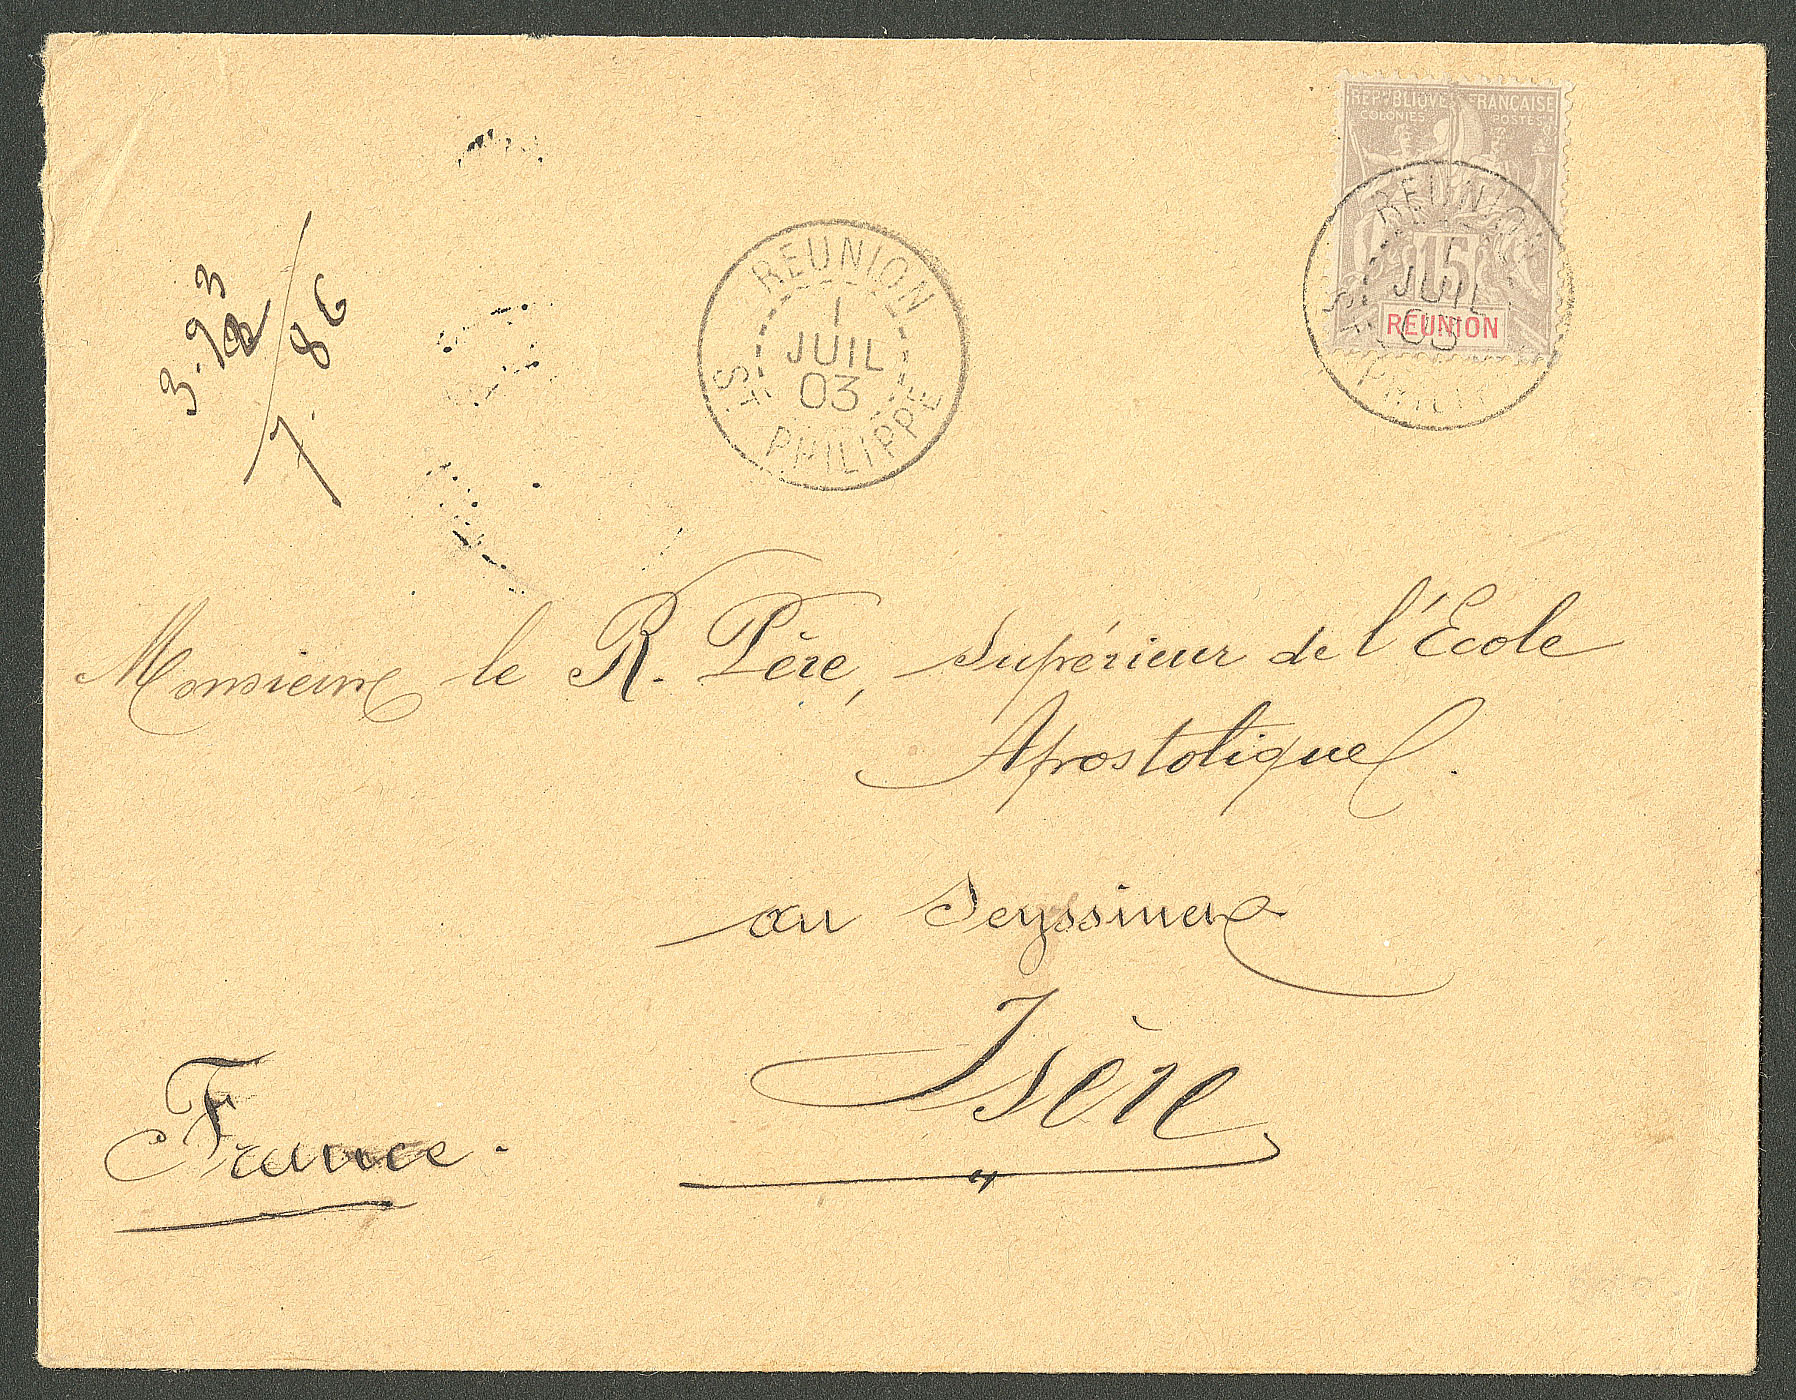 REPUBLIQUE FRANÇAISE
COLONIES POSTES
15
REUNION
REUNION
1
JUIL
03
ST PHILIPPE
REUNION
1
JUIL
03
ST PHILIPPE
3.93
7.86
Monsieur le R. Père, Supérieur de l'École
Apostolique.
au Seyssinet
Isère
France.